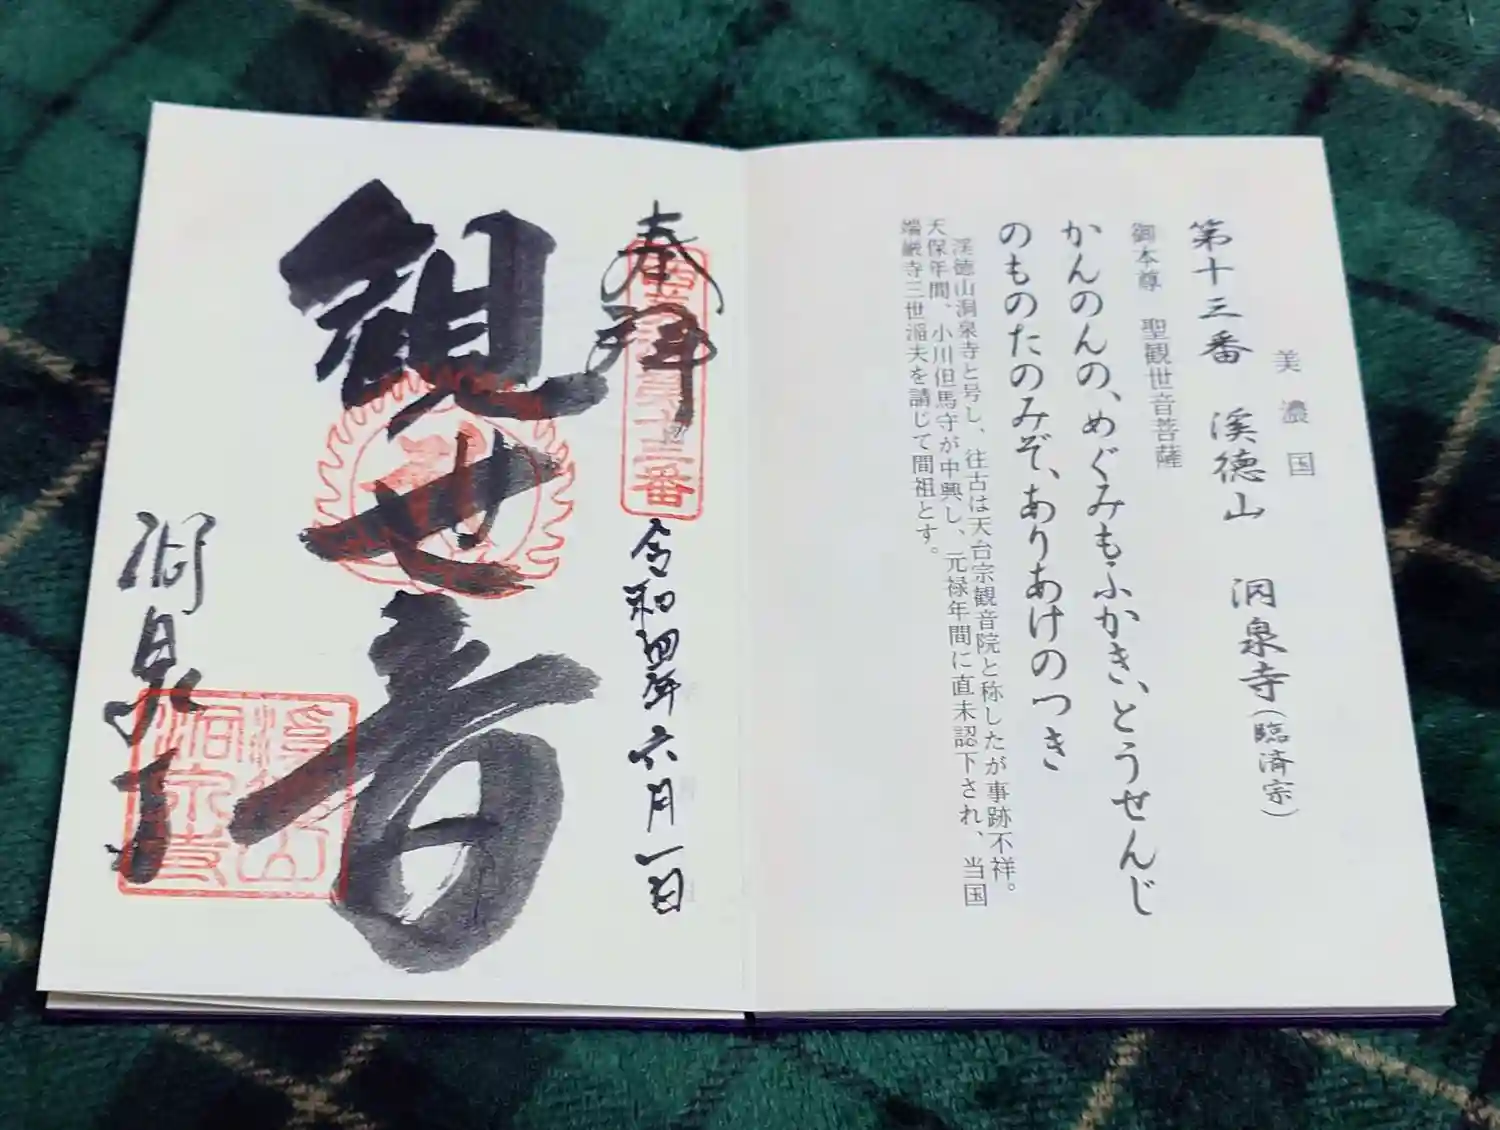 美濃国
第十三番　溪徳山　洞泉寺（臨済宗）
御本尊　聖観世音菩薩
かんのんの、めぐみもふかき、とうせんじ
のものたのみぞ、ありあけのつき
溪徳山洞泉寺と号し、往古は天台宗観音院と称したが事跡不祥。
天保年間、小川但馬守が中興し、元禄年間に直末認下され、当国
端巌寺三世溜夫を請じて間祖とす。
奉拝
十三番
令和四年六月一日
観世音
洞泉寺
溪徳山
洞泉寺